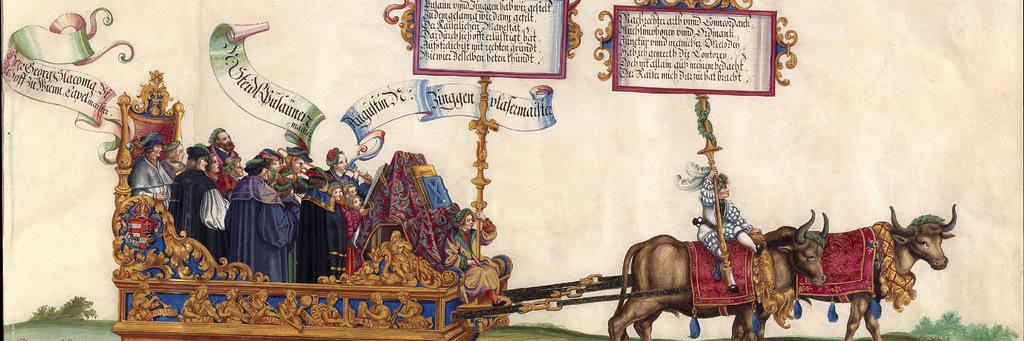 Her Georg Slacoma N.
Hoff zu Wienn Capelmaister
Steudl Pusauner
maister
Augustin N: Zinggen plasemaister
Pusaun unnd Zinggen hab wir gestelt
Zu dem gesanng wie dann gefelt
Der Kaiserlichen Mayestat
Dardurch sich offt erlustigt hat
Auffs lieblichist mit rechten grundt
Wie wir desselben heten khundt
Nach rechter arth unnd Conncordanntz
Auch Simphoney unnd Ordnantz
Junctur unnd manicher Melodey
Hab ich gemerth die Canntorey
Doch nit allain aus meinem bedacht
Der Kaiser mich darzu hat bracht